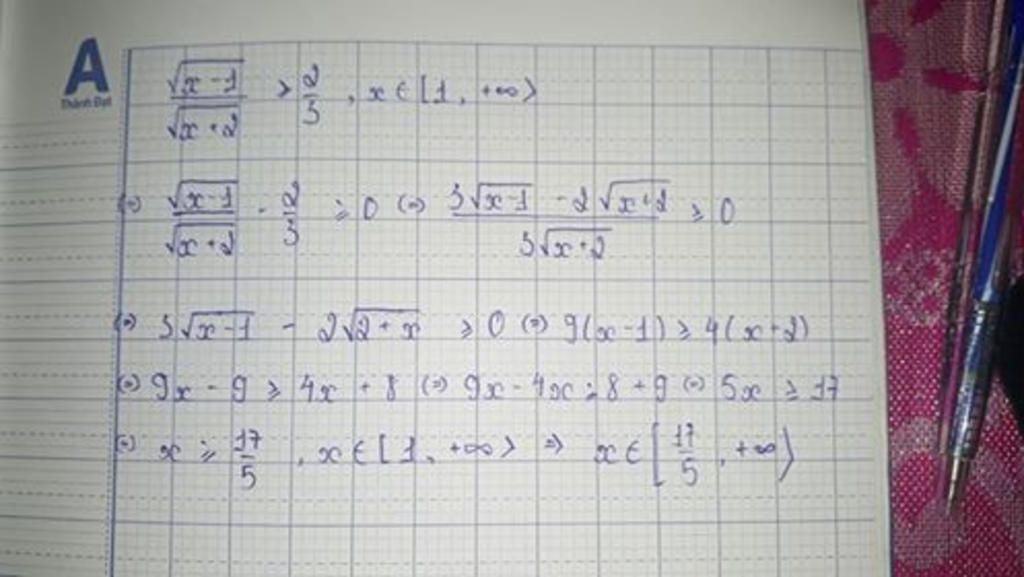 A
Thành Đạt
√(x-1)/√(x+2) ≥ 2/3, x ∈ [1, +∞)
(=) √(x-1)/√(x+2) - 2/3 ≥ 0 (=) (3√(x-1) - 2√(x+2))/(3√(x+2)) ≥ 0
(=) 3√(x-1) - 2√(2+x) ≥ 0 (=) 9(x-1) ≥ 4(x+2)
(=) 9x - 9 ≥ 4x + 8 (=) 9x - 4x ≥ 8 + 9 (=) 5x ≥ 17
(=) x ≥ 17/5, x ∈ [1, +∞) => x ∈ [17/5, +∞)